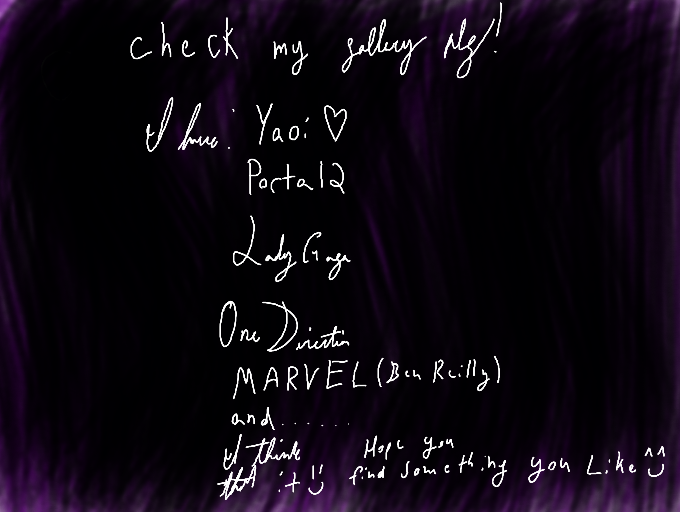 check my gallery plz!
I have: Yaoi ♡
Portal 2
Lady Gaga
One Direction
MARVEL (Ben Reilly)
and.......
I think Hope you
that it :) find something you Like ^^